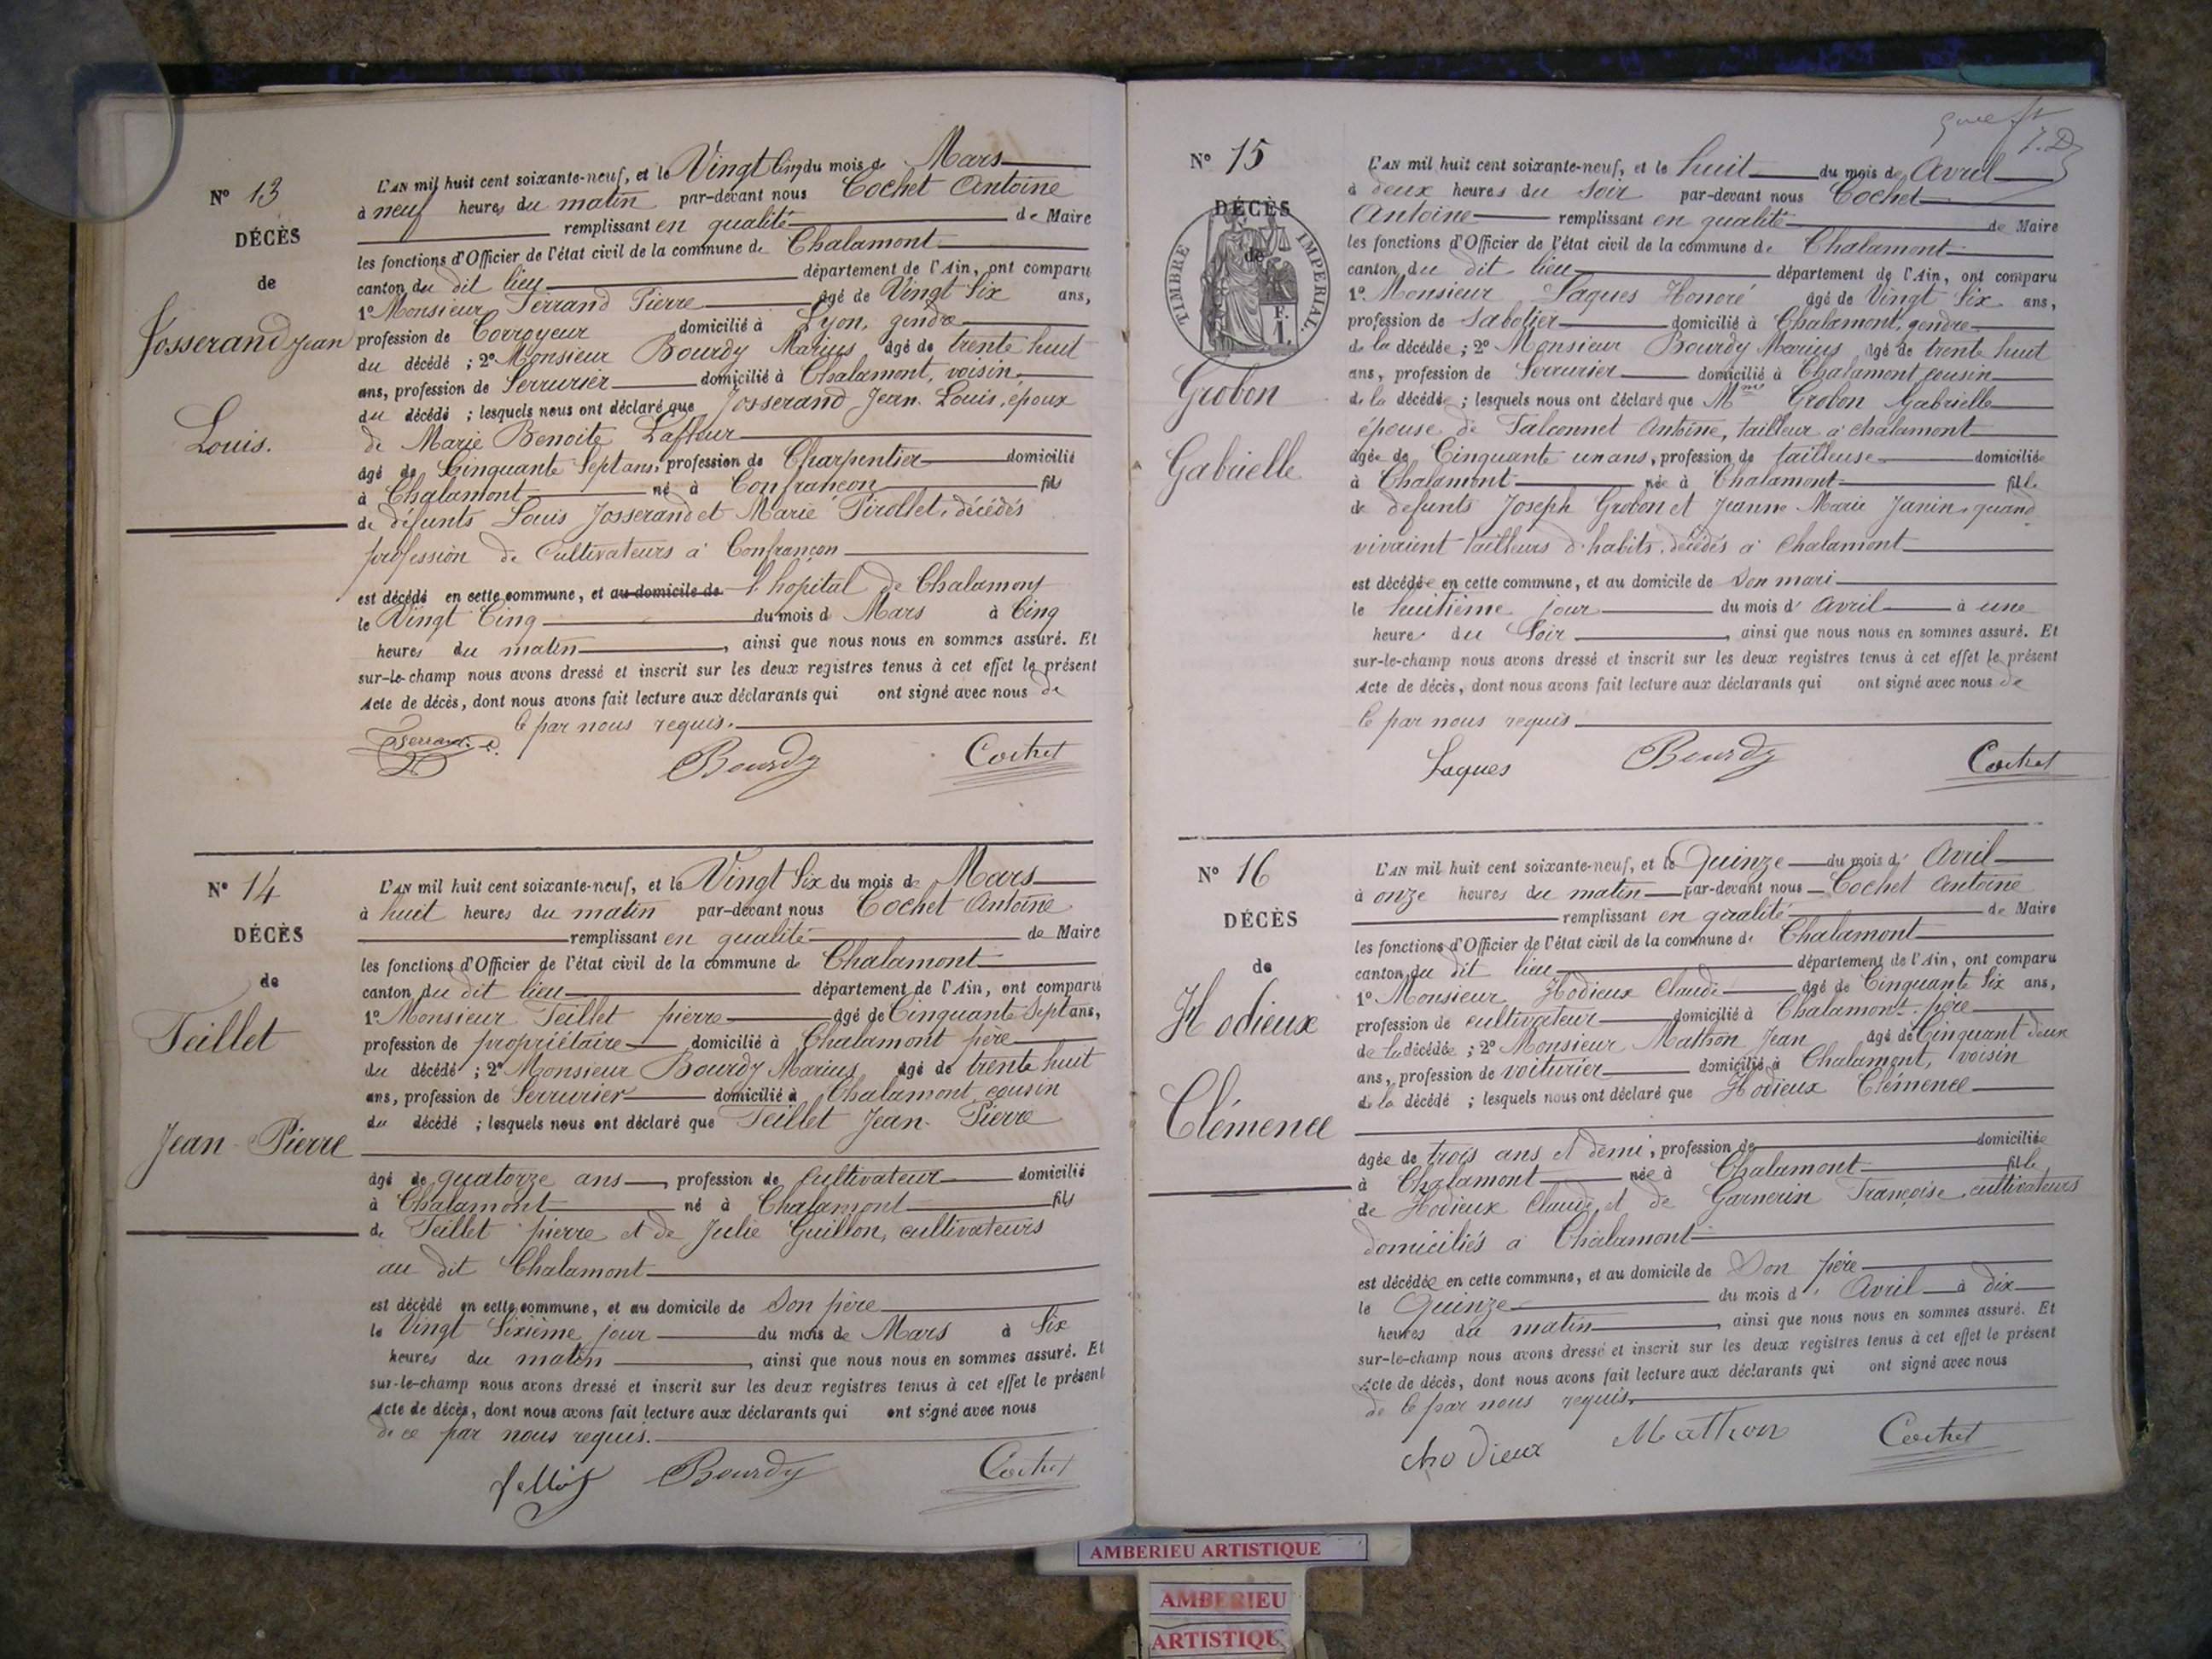 Nº 13
DÉCÈS
de
Josserand Jean
Louis.
L'AN mil huit cent soixante-neuf, et le Vingt Cinq du mois de Mars
à neuf heures du matin par-devant nous Cochet Antoine
remplissant en qualité de Maire
les fonctions d'Officier de l'état civil de la commune de Chalamont
canton du dit lieu département de l'Ain, ont comparu
1º Monsieur Ferrand Pierre âgé de Vingt Six ans,
profession de Corroyeur domicilié à Lyon, gendre
du décédé ; 2º Monsieur Bourdy Marius âgé de trente huit
ans, profession de Serrurier domicilié à Chalamont, voisin
du décédé ; lesquels nous ont déclaré que Josserand Jean Louis, époux
de Marie Benoite
âgé de Cinquante Sept ans, profession de Charpentier domicilié
à Chalamont né à Confrançon fils
de défunts Louis Josserand et Marie Pirollet, décédés
profession de Cultivateurs à Confrançon
est décédé en cette commune, et au domicile de l'hôpital de Chalamont
le Vingt Cinq du mois d Mars à Cinq
heures du matin, ainsi que nous nous en sommes assuré. Et
sur-le-champ nous avons dressé et inscrit sur les deux registres tenus à cet effet le présent
Acte de décès, dont nous avons fait lecture aux déclarants qui ont signé avec nous de
ce par nous requis.
Bourdy Cochet
Nº 14
DÉCÈS
de
Teillet
Jean-Pierre
L'AN mil huit cent soixante-neuf, et le Vingt Six du mois de Mars
à huit heures du matin par-devant nous Cochet Antoine
remplissant en qualité de Maire
les fonctions d'Officier de l'état civil de la commune de Chalamont
canton du dit lieu département de l'Ain, ont comparu
1º Monsieur Teillet pierre âgé de Cinquante Sept ans,
profession de propriétaire domicilié à Chalamont père
du décédé ; 2º Monsieur Bourdy Marius âgé de trente huit
ans, profession de Serrurier domicilié à Chalamont cousin
du décédé ; lesquels nous ont déclaré que Teillet Jean-Pierre
âgé de quatorze ans, profession de Cultivateur domicilié
à Chalamont né à Chalamont fils
de Teillet pierre et de Julie Guillon, cultivateurs
au dit Chalamont
est décédé en cette commune, et au domicile de Son père
le Vingt Sixième jour du mois de Mars à Six
heures du matin, ainsi que nous nous en sommes assuré. Et
sur-le-champ nous avons dressé et inscrit sur les deux registres tenus à cet effet le présent
Acte de décès, dont nous avons fait lecture aux déclarants qui ont signé avec nous
de ce par nous requis.
Bourdy Cochet
Nº 15
DÉCÈS
de
TIMBRE IMPÉRIAL.
1 F.
Grobon
Gabrielle
L'AN mil huit cent soixante-neuf, et le huit du mois de Avril
à deux heures du Soir par-devant nous Cochet
Antoine remplissant en qualité de Maire
les fonctions d'Officier de l'état civil de la commune de Chalamont
canton du dit lieu département de l'Ain, ont comparu
1º Monsieur Laques Honoré âgé de Vingt Six ans,
profession de Sabotier domicilié à Chalamont, gendre
de la décédée ; 2º Monsieur Bourdy Marius âgé de trente huit
ans, profession de Serrurier domicilié à Chalamont cousin
de la décédée ; lesquels nous ont déclaré que Mme Grobon Gabrielle
épouse de Falconnet Antoine, tailleur à chalamont
âgée de Cinquante un ans, profession de tailleuse domiciliée
à Chalamont née à Chalamont fille
de défunts Joseph Grobon et Jeanne Marie Janin, quand
vivaient tailleurs d'habits, décédés à Chalamont
est décédée en cette commune, et au domicile de Son mari
le huitième jour du mois d' Avril à une
heure du Soir, ainsi que nous nous en sommes assuré. Et
sur-le-champ nous avons dressé et inscrit sur les deux registres tenus à cet effet le présent
Acte de décès, dont nous avons fait lecture aux déclarants qui ont signé avec nous de
ce par nous requis
Laques Bourdy Cochet
Nº 16
DÉCÈS
de
Hodieux
Clémence
L'AN mil huit cent soixante-neuf, et le Quinze du mois d' Avril
à onze heures du matin par-devant nous Cochet Antoine
remplissant en qualité de Maire
les fonctions d'Officier de l'état civil de la commune de Chalamont
canton du dit lieu département de l'Ain, ont comparu
1º Monsieur Hodieux Claude âgé de Cinquante Six ans,
profession de cultivateur domicilié à Chalamont père
de la décédée ; 2º Monsieur Mathon Jean âgé de Cinquant deux
ans, profession de voiturier domicilié à Chalamont, voisin
de la décédé ; lesquels nous ont déclaré que Hodieux Clémence
âgée de trois ans et demi, profession de domiciliée
à Chalamont née à Chalamont fille
de Hodieux Claude et de Garnerin Françoise cultivateurs
domiciliés à Chalamont
est décédée en cette commune, et au domicile de Son père
le Quinze du mois d' Avril à dix
heures du matin, ainsi que nous nous en sommes assuré. Et
sur-le-champ nous avons dressé et inscrit sur les deux registres tenus à cet effet le présent
Acte de décès, dont nous avons fait lecture aux déclarants qui ont signé avec nous
de ce par nous requis.
Mathon Cochet
AMBERIEU ARTISTIQUE
AMBERIEU
ARTISTIQUE